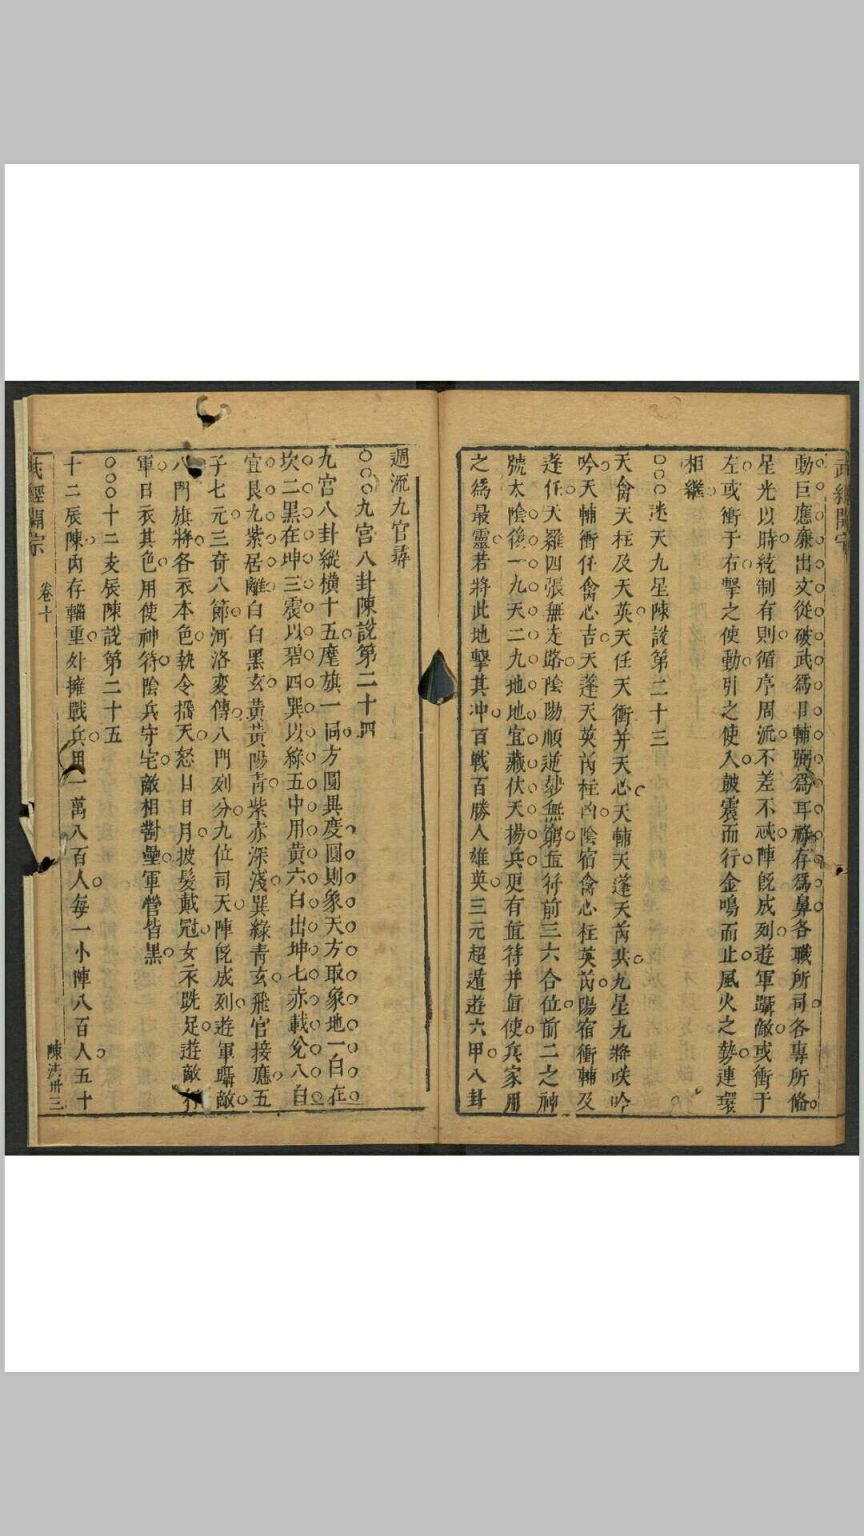 武經開宗
動巨應廉出文從破武爲目輔弼爲耳祿存爲鼻各職所司各專所脩
星光以時統制有則循序周流不差不忒陣旣成列遊軍驕敵或衝于
左或衝于右擊之使動引之使入皷震而行金鳴而止風火之勢連環
相繼
○○○迷天九星陳說第二十三
天禽天柱及天英天任天衝并天心天輔天蓬天芮共九星九將咲吟
吟天輔衝任禽心吉天蓬天英芮柱凶陰宿禽心柱英芮陽宿衝輔及
蓬任天羅四張無走路陰陽順逆妙無窮直符前三六合位前二之神
號太陰後一九天二九地地宜藏伏天揚兵更有直符并直使兵家用
之爲最靈若將此地擊其冲百戰百勝人雄英三元超遁遊六甲八卦
週流九宮尋
○○○九宮八卦陳說第二十四
九宮八卦縱橫十五麾旗一同方圓異度圓則象天方取象地一白在
坎二黑在坤三震以碧四巽以綠五中用黃六白出坤七赤載兌八白
宜艮九紫居離白白黑玄黃黃陽靑紫赤深淺巽綠靑玄飛宮接應五
子七元三奇八節河洛変傳八門列分九位司天陣旣成列遊軍驕敵
八門旗將各衣本色執令揺天怒日日月披髮戴冠女衣跣足遊敵
軍日衣其色用使神符陰兵守宅敵相對壘軍營皆黑
○○○十二支辰陳說第二十五
十二辰陳內存輜重外擁戰兵用一萬八百人每一小陣八百人五十
武經開宗
卷十
陳法卅三